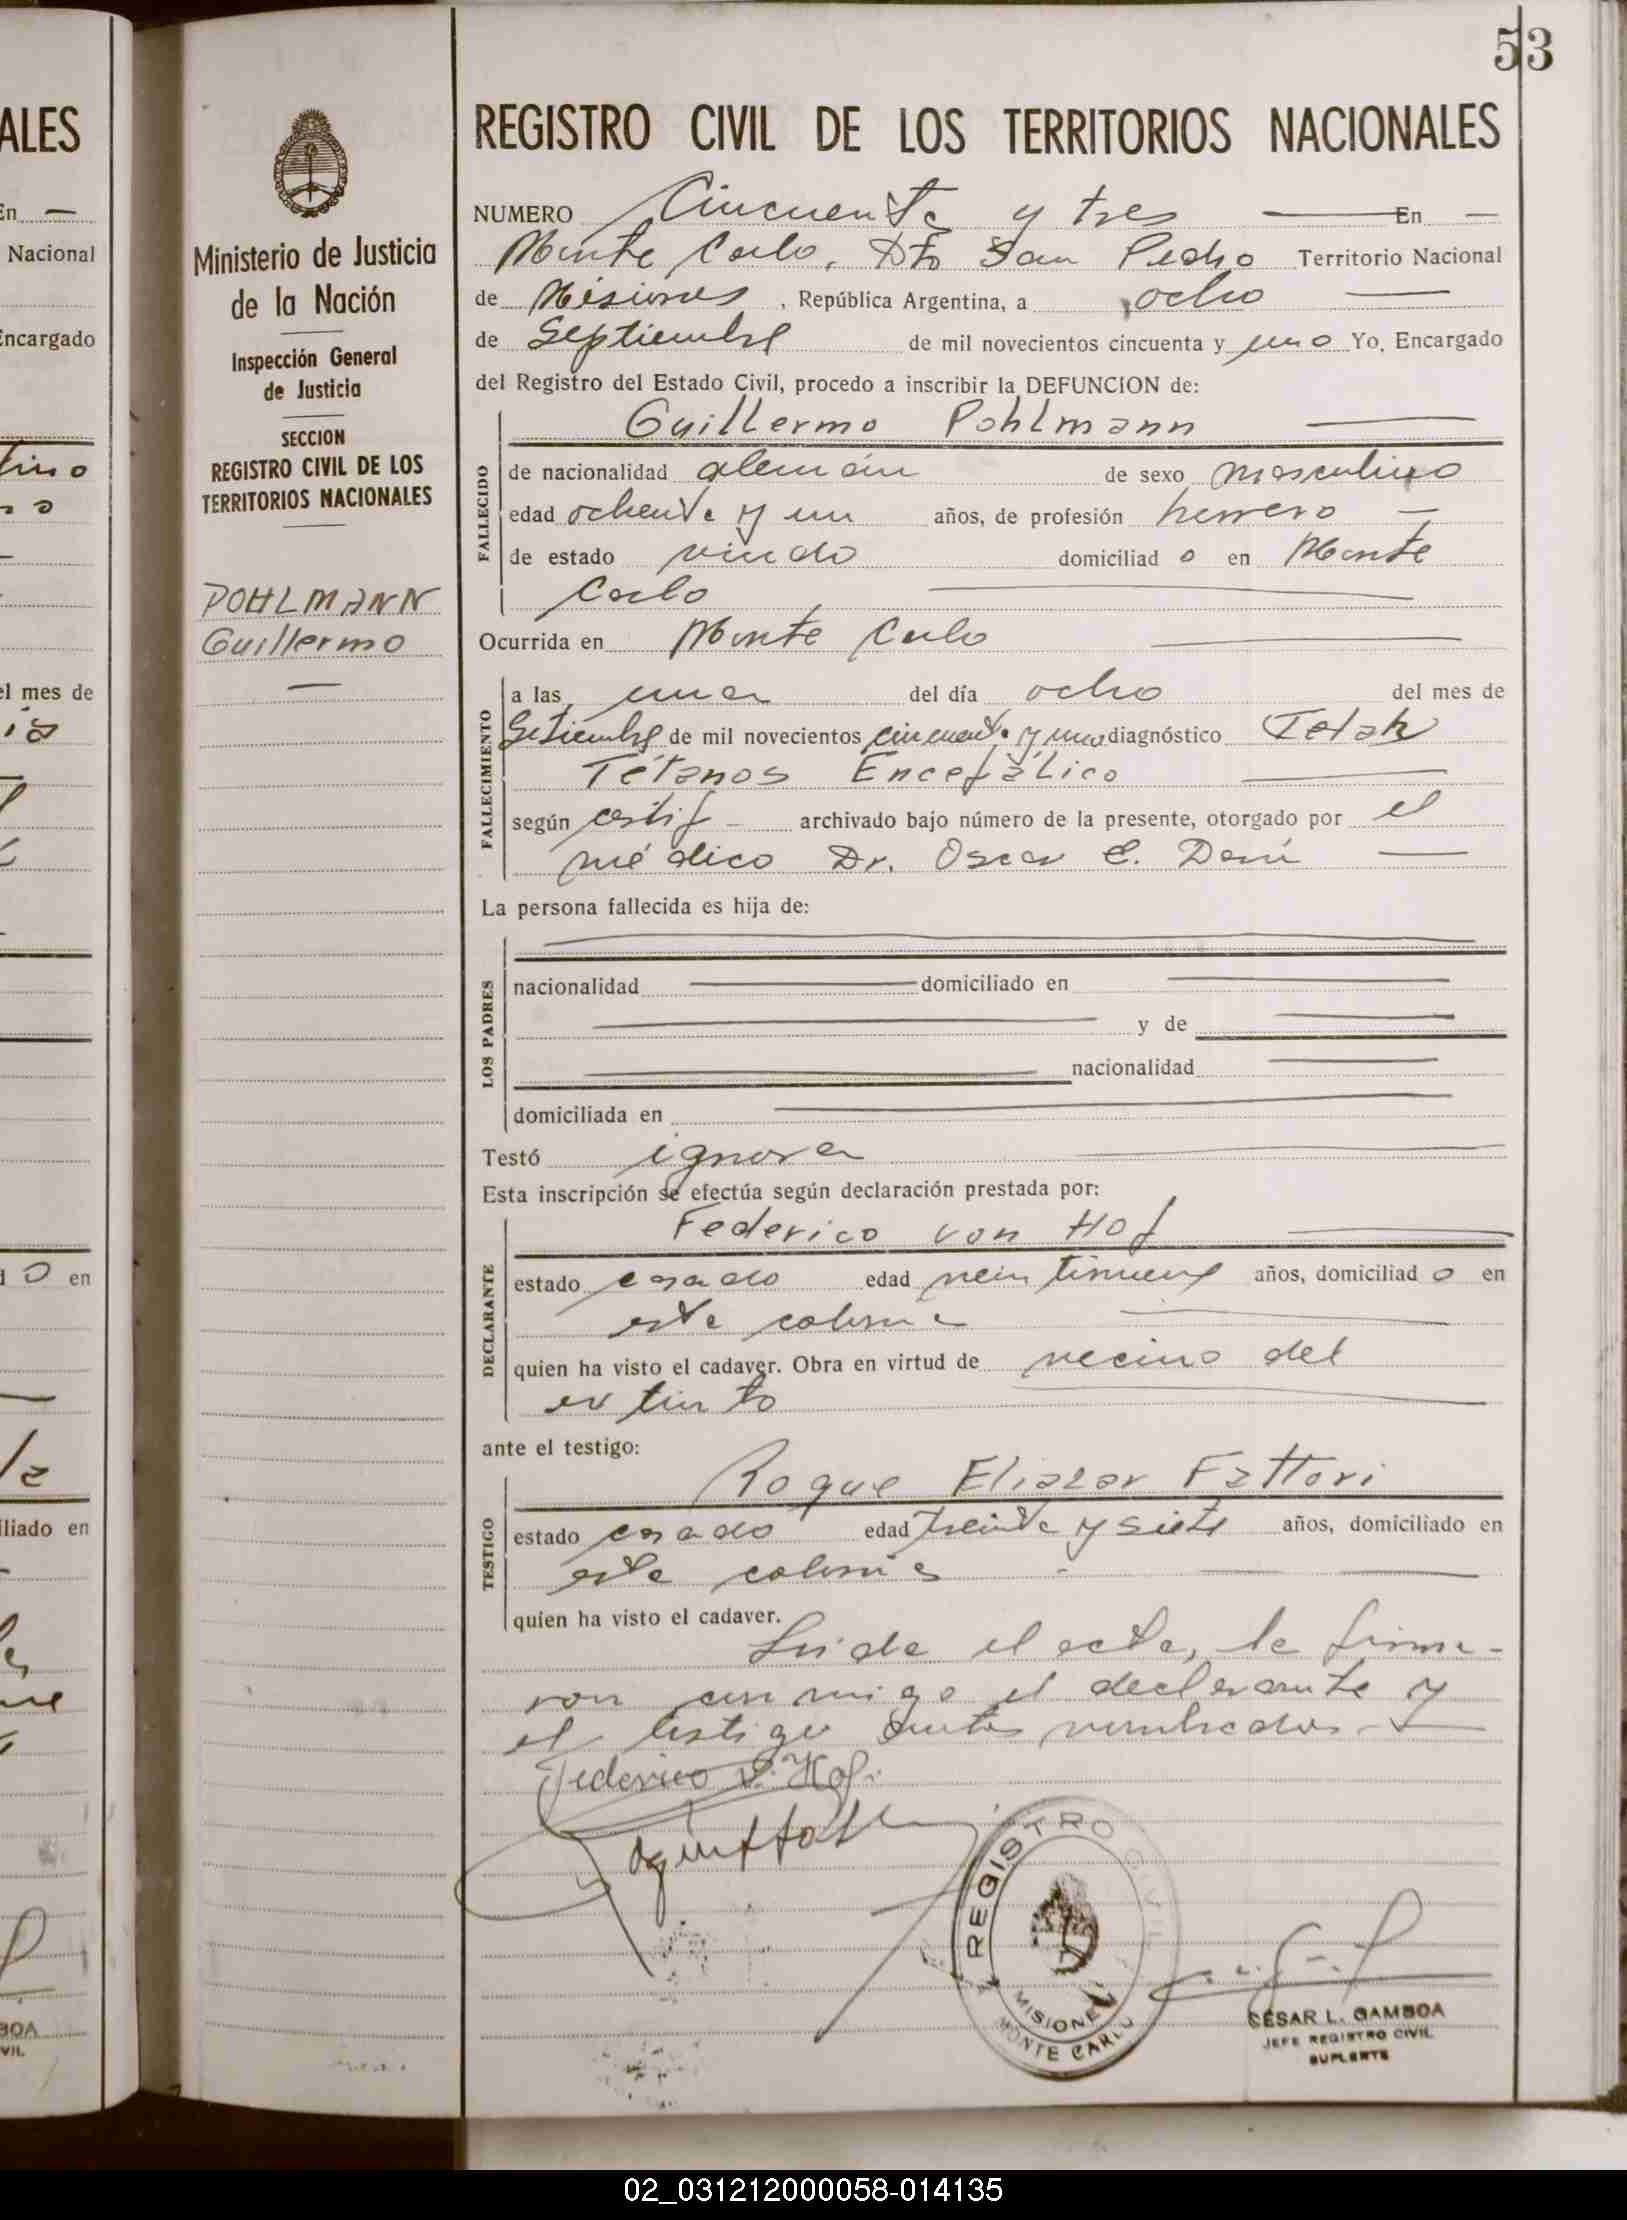 53
ALES
En
Nacional
Encargado
el mes de
en
iliado en
Ministerio de Justicia
de la Nación
Inspección General
de Justicia
SECCION
REGISTRO CIVIL DE LOS
TERRITORIOS NACIONALES
POHLMANN
Guillermo
REGISTRO CIVIL DE LOS TERRITORIOS NACIONALES
NUMERO Cincuenta y tres En
Monte Carlo, Dto San Pedro Territorio Nacional
de Misiones, República Argentina, a ocho
de Septiembre de mil novecientos cincuenta y uno Yo, Encargado
del Registro del Estado Civil, procedo a inscribir la DEFUNCION de:
Guillermo Pohlmann
FALLECIDO
de nacionalidad alemán de sexo masculino
edad ochenta y un años, de profesión herrero
de estado viudo domiciliad o en Monte
Carlo
Ocurrida en Monte Carlo
FALLECIMIENTO
a las una del día ocho del mes de
Setiembre de mil novecientos cincuenta y uno diagnóstico
Tétanos Encefálico
según certif archivado bajo número de la presente, otorgado por el
médico Dr. Oscar E.
La persona fallecida es hija de:
LOS PADRES
nacionalidad domiciliado en
y de
nacionalidad
domiciliada en
Testó ignora
Esta inscripción se efectúa según declaración prestada por:
Federico von Hof
DECLARANTE
estado casado edad veintinueve años, domiciliad o en
esta colonia
quien ha visto el cadaver. Obra en virtud de vecino del
extinto
ante el testigo:
Roque Eliazar Fattori
TESTIGO
estado casado edad treinta y siete años, domiciliado en
esta colonia
quien ha visto el cadaver.
Leida el acta, la firma-
ron conmigo el declarante y
el testigo antes nombrados.-
Federico v. Hof.
REGISTRO CIVIL
MISIONES
MONTE CARLO
CÉSAR L. GAMBOA
JEFE REGISTRO CIVIL
SUPLENTE
BOA
VIL
02_031212000058-014135